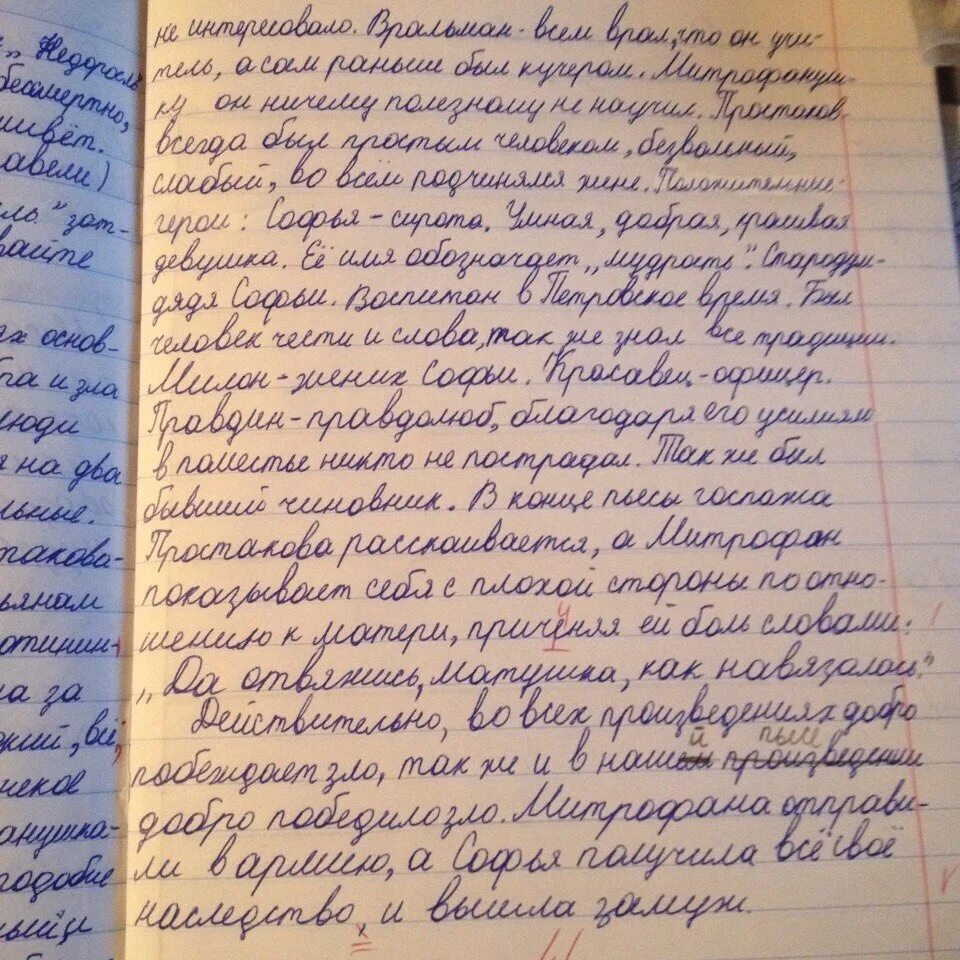 „Недоросль
бессмертно,
живёт.
зат-
вайте
основ-
и зла
люди
на два
льные.
такова-
ьянам
отинин-
на за
кий, всё,
неков
анушка-
подобие
не интересовало. Вральман - всем врал, что он учи-
тель, а сам раньше был кучером. Митрофануш-
ку он ничему полезному не научил. Простаков-
всегда был простым человеком, безвольный,
слабый, во всём подчинялся жене. Положительные
герои: Софья - сирота. Умная, добрая, красивая
девушка. Её имя обозначает „мудрость". Стародум-
дядя Софьи. Воспитан в Петровское время. Был
человек чести и слова, так же знал все традиции.
Милон - жених Софьи. Красавец - офицер.
Правдин - правдолюб, благодаря его усилиям
в поместье никто не пострадал. Так же был
бывший чиновник. В конце пьесы госпожа
Простакова расскаивается, а Митрофан
показывает себя с плохой стороны по отно-
шению к матери, причиняя ей боль словами:
„Да отвяжись, матушка, как навязалась"
Действительно, во всех произведениях добро
побеждает зло, так же и в нашей пьесе произведении
добро победило зло. Митрофана отправи-
ли в армию, а Софья получила всё своё
наследство, и вышла замуж.